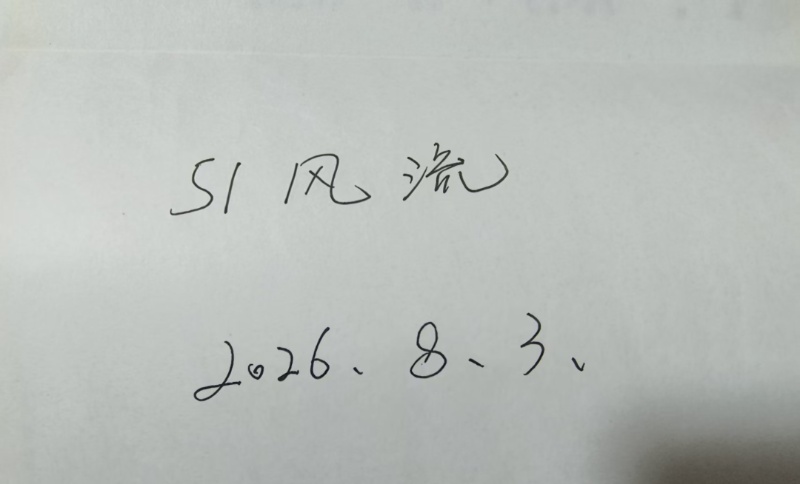 51风流
2026、8、3、